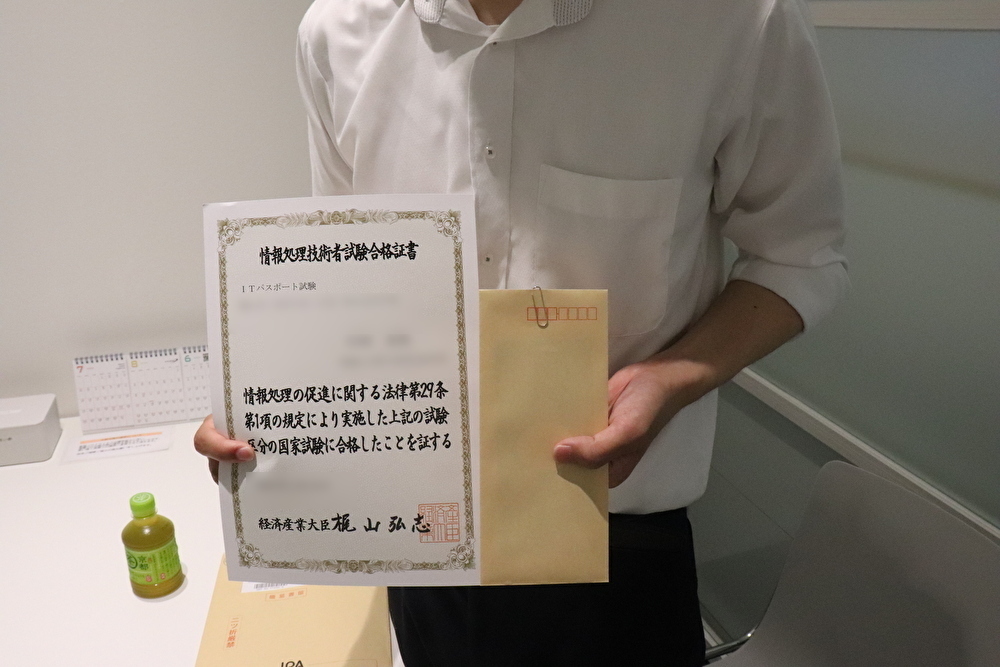 情報処理技術者試験合格証書
ITパスポート試験
情報処理の促進に関する法律第29条
第1項の規定により実施した上記の試験
区分の国家試験に合格したことを証する
経済産業大臣 梶山弘志
7
8
6
二つ折厳禁
IPA